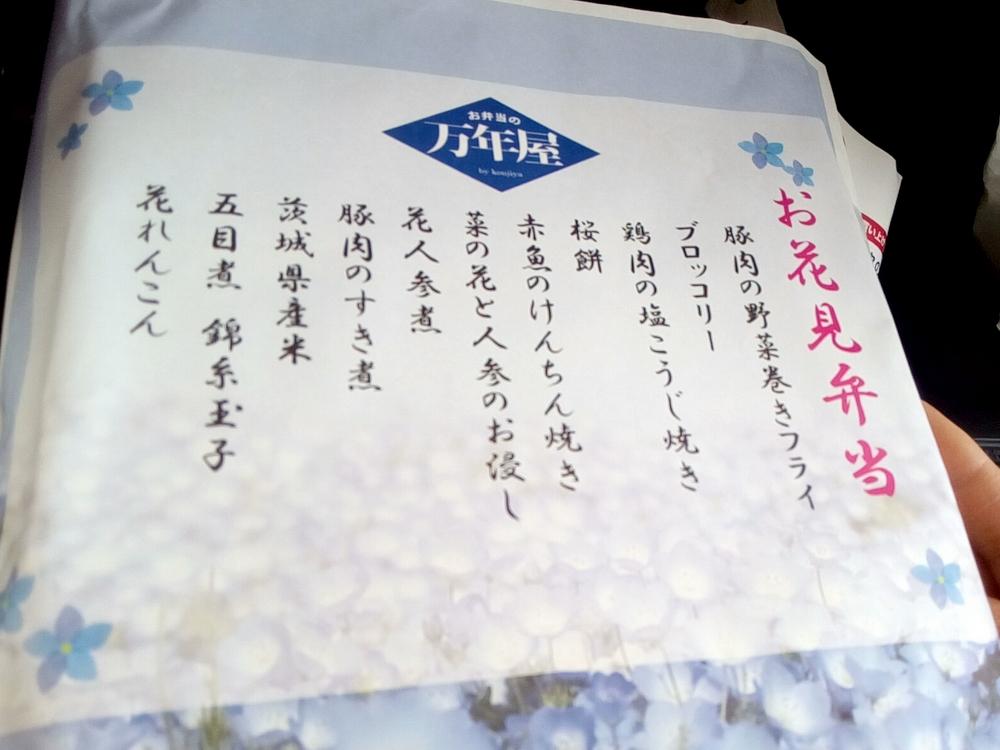 お弁当の
万年屋
by koujiya
お花見弁当
豚肉の野菜巻きフライ
ブロッコリー
鶏肉の塩こうじ焼き
桜餅
赤魚のけんちん焼き
菜の花と人参のお浸し
花人参煮
豚肉のすき煮
茨城県産米
五目煮 錦糸玉子
花れんこん